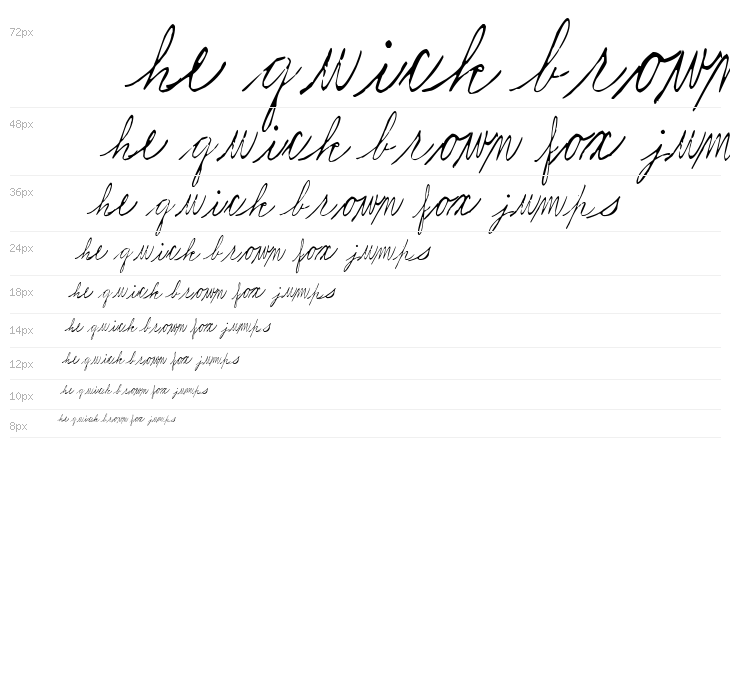 72px he quick brown
48px he quick brown fox jum
36px he quick brown fox jumps
24px he quick brown fox jumps
18px he quick brown fox jumps
14px he quick brown fox jumps
12px he quick brown fox jumps
10px he quick brown fox jumps
8px he quick brown fox jumps